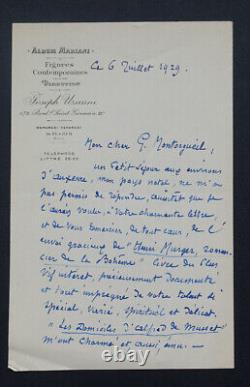 ALBUM MARIANI
Figures
Contemporaines
DIRECTEUR
Joseph Uzanne
172, Boul. Saint Germain
TÉLÉPHONE
LITTRÉ
Ce 6 Juillet 1929.
Mon cher G. Montorgueil,
un Petit Séjour aux environs
d'Auxerre, mon pays natal, ne m'a
pas permis de répondre, aussitôt que je
l'aurais voulu, à votre charmante lettre,
et de vous remercier, de tout cœur, de l'
envoi gracieux de "Henri Murger, roman-
cier de la Bohème" livre du plus
vif intérêt, précieusement Documenté
et tout imprégné de votre talent si
spécial, varié, spirituel et délicat.
"Les Domiciles d'Alfred de Musset"
m'ont charmé et aussi ému. —
winterparkcrossfit.com